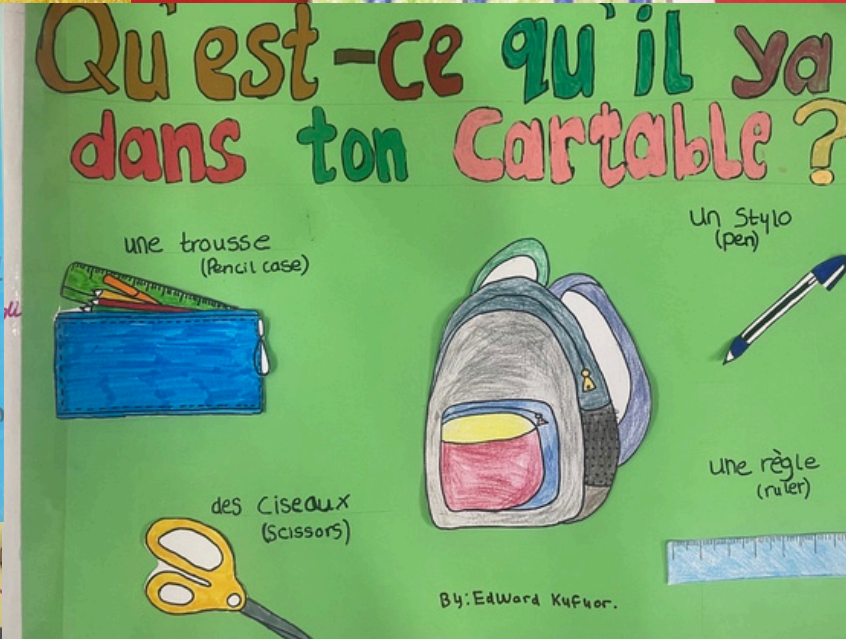 Qu'est-ce qu'il ya
dans ton Cartable ?
une trousse
(Pencil case)
un Stylo
(pen)
une règle
(ruler)
des ciseaux
(Scissors)
By: Edward Kufuor.